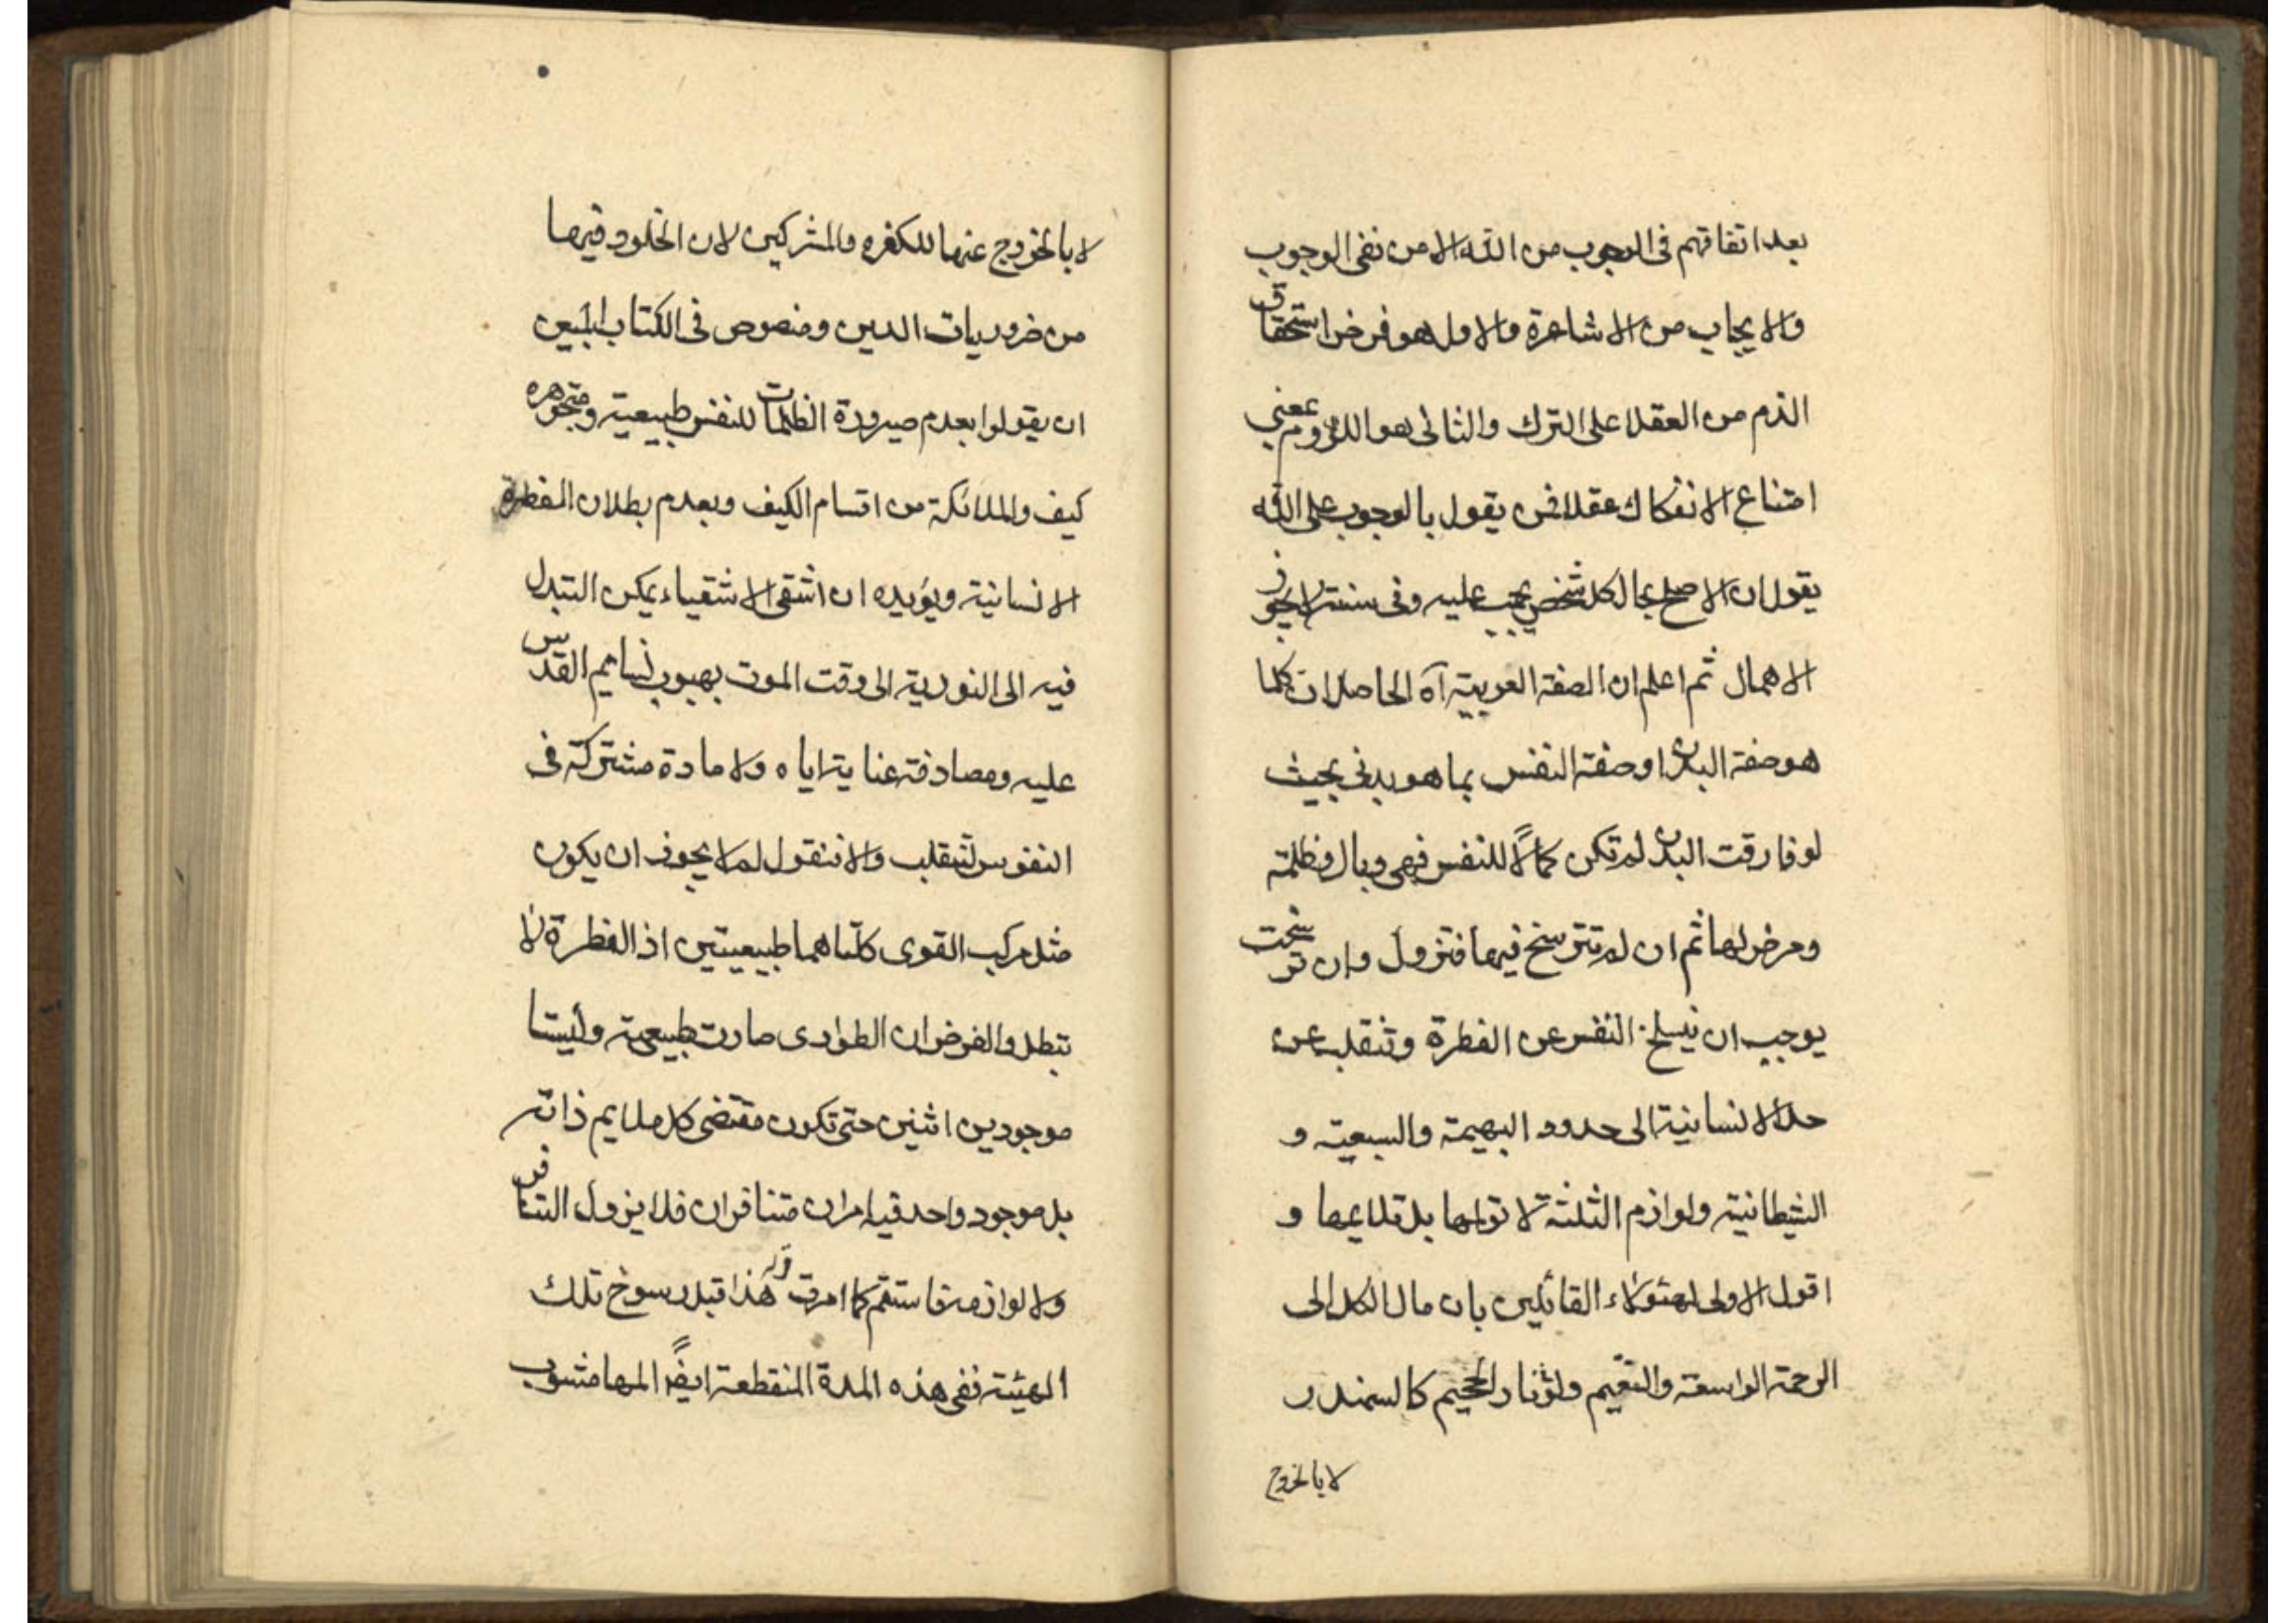 بعد اتفاقهم فى الوجوب من الله الا من نفى الوجوب
والايجاب من الاشاعرة والاول هو فرض استحقاق
الذم من العقلا على الترك والثانى هو اللزوم بمعنى
امتناع الانفكاك عقلا فمن يقول بالوجوب على الله
يقول ان الاصلح بحال كل شخص يجب عليه وفى سنته لا يجوز
الاهمال ثم اعلم ان الصفة الغريبة آه الحاصلات كلما
هو صفة البدن او صفة النفس بما هو بدنى بحيث
لو فارقت البدن لم تكن كمالًا للنفس فهى وبال وظلمة
ومرض لها ثم ان لم تترسخ فيها فتزول وان ترسخت
يوجب ان ينسلخ النفس عن الفطرة وتنقلب عن
حد الانسانية الى حدود البهيمة والسبعية و
الشيطانية ولوازم الثلثة لا تولمها بل تلايمها و
اقول الاولى لهئولاء القائلين بان مال الكل الى
الرحمة الواسعة والنعيم ولو فى نار الجحيم كالسمندر
لا بالخروج
لا بالخروج عنها للكفره والمشركين لان الخلود فيها
من ضروريات الدين ومنصوص فى الكتاب المبين
ان يقولوا بعدم صيرورة الظلمات للنفس طبيعية ومتجوهره
كيف والملائكة من اقسام الكيف وبعدم بطلان الفطرة
الانسانية ويؤيده ان اشقى الاشقياء يمكن التبدل
فيه الى النورية الى وقت الموت بهبوب نسايم القدس
عليه ومصادفة عناية اياه ولا مادة مشتركة فى
النفوس لتنقلب والا فنقول لم لا يجوز ان يكون
مثل مركب القوى كلتاهما طبيعيتين اذ الفطرة لا
تبطل والفرض ان الطوارى صارت طبيعية وليستا
موجودين اثنين حتى تكون مقتضى كل ملايم ذاته
بل موجود واحد فيه امران متنافران فلا يزول التنافر
ولا لوازمه فاستقم كما امرت وله هذا قبل رسوخ تلك
الهيئة ففى هذه المدة المنقطعة ايضًا المها مشوب